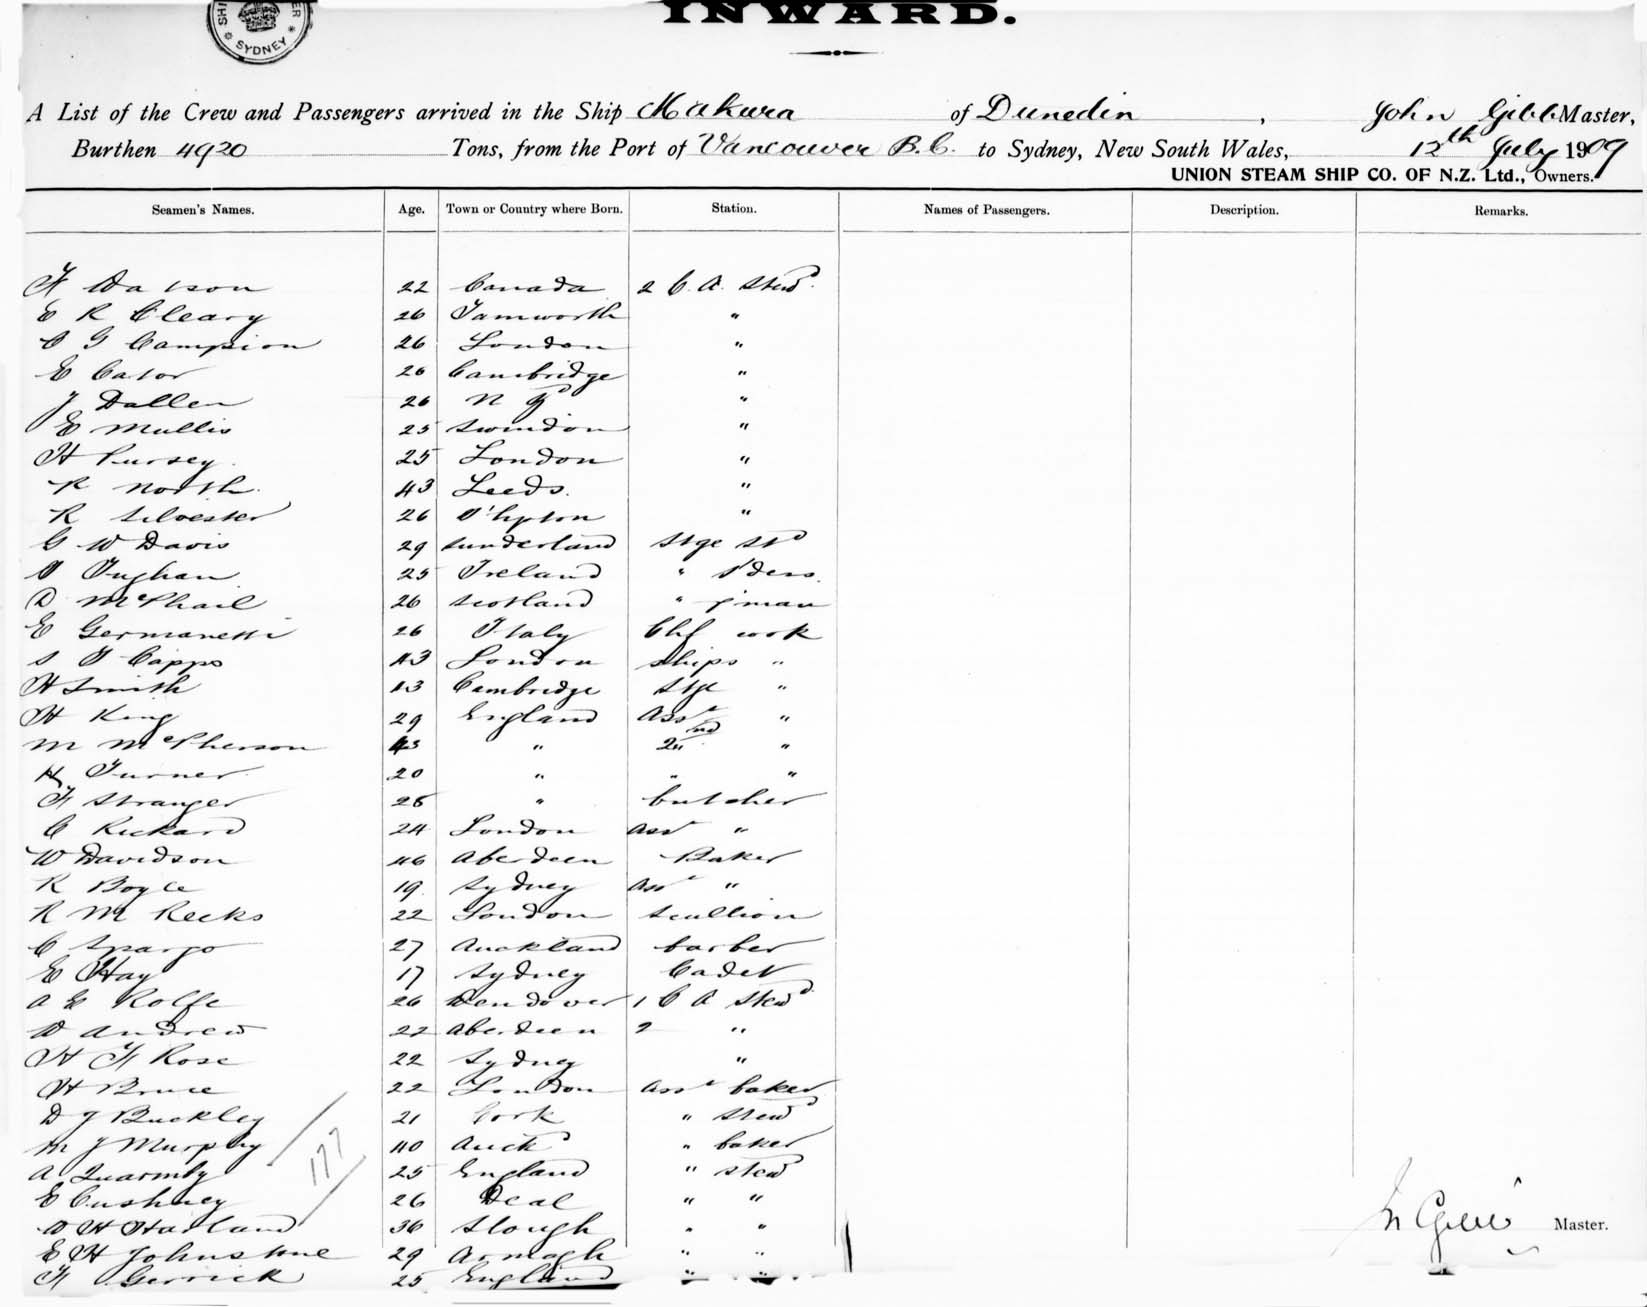 SYDNEY
INWARD.
A List of the Crew and Passengers arrived in the Ship Makura of Dunedin, John Gibb Master,
Burthen 4920 Tons, from the Port of Vancouver B.C. to Sydney, New South Wales, 12th July 1909
UNION STEAM SHIP CO. OF N.Z. Ltd., Owners.
Seamen's Names. Age. Town or Country where Born. Station. Names of Passengers. Description. Remarks.
F Watson 22 Canada 2 C. A. Stewd.
E R Cleary 26 Tamworth "
C G Campion 26 London "
E Cator 26 Cambridge "
J Dallen 26 N Zd "
E Mullis 25 Swindon "
H Pursey 25 London "
R North 43 Leeds. "
R Silvester 26 "
G W Davis 29 Sunderland Stge Std
25 Ireland "
D McPhail 26 Scotland " p'man
E Germanetti 26 Italy Chf cook
S T Capps 43 London Ships "
H Smith 43 Cambridge Stge "
H King 29 England Asst "
M McPherson 43 " 2nd "
H Turner 20 " " "
F Stranger 25 " butcher
C Rickard 24 London Asst "
W Davidson 46 Aberdeen Baker
R Boyce 19 Sydney Asst "
R M Reeks 22 London Scullion
C Spargo 27 Auckland barber
E Hay 17 Sydney Cadet
A E Rolfe 26 Wendover 1 C A Stewd
W Andrew 22 Aberdeen 2 "
H F Rose 22 Sydney "
H Bruce 22 London Asst baker
D J Buckley 21 Cork " Stewd
M J Murphy 40 Auckd " baker
A Quarmby 25 England " Stewd
177
E Cushney 26 Deal " "
W H Harland 36 Slough " "
E H Johnstone 29 Armagh " "
F Gerrick 25 England " "
Jn Gibb Master.